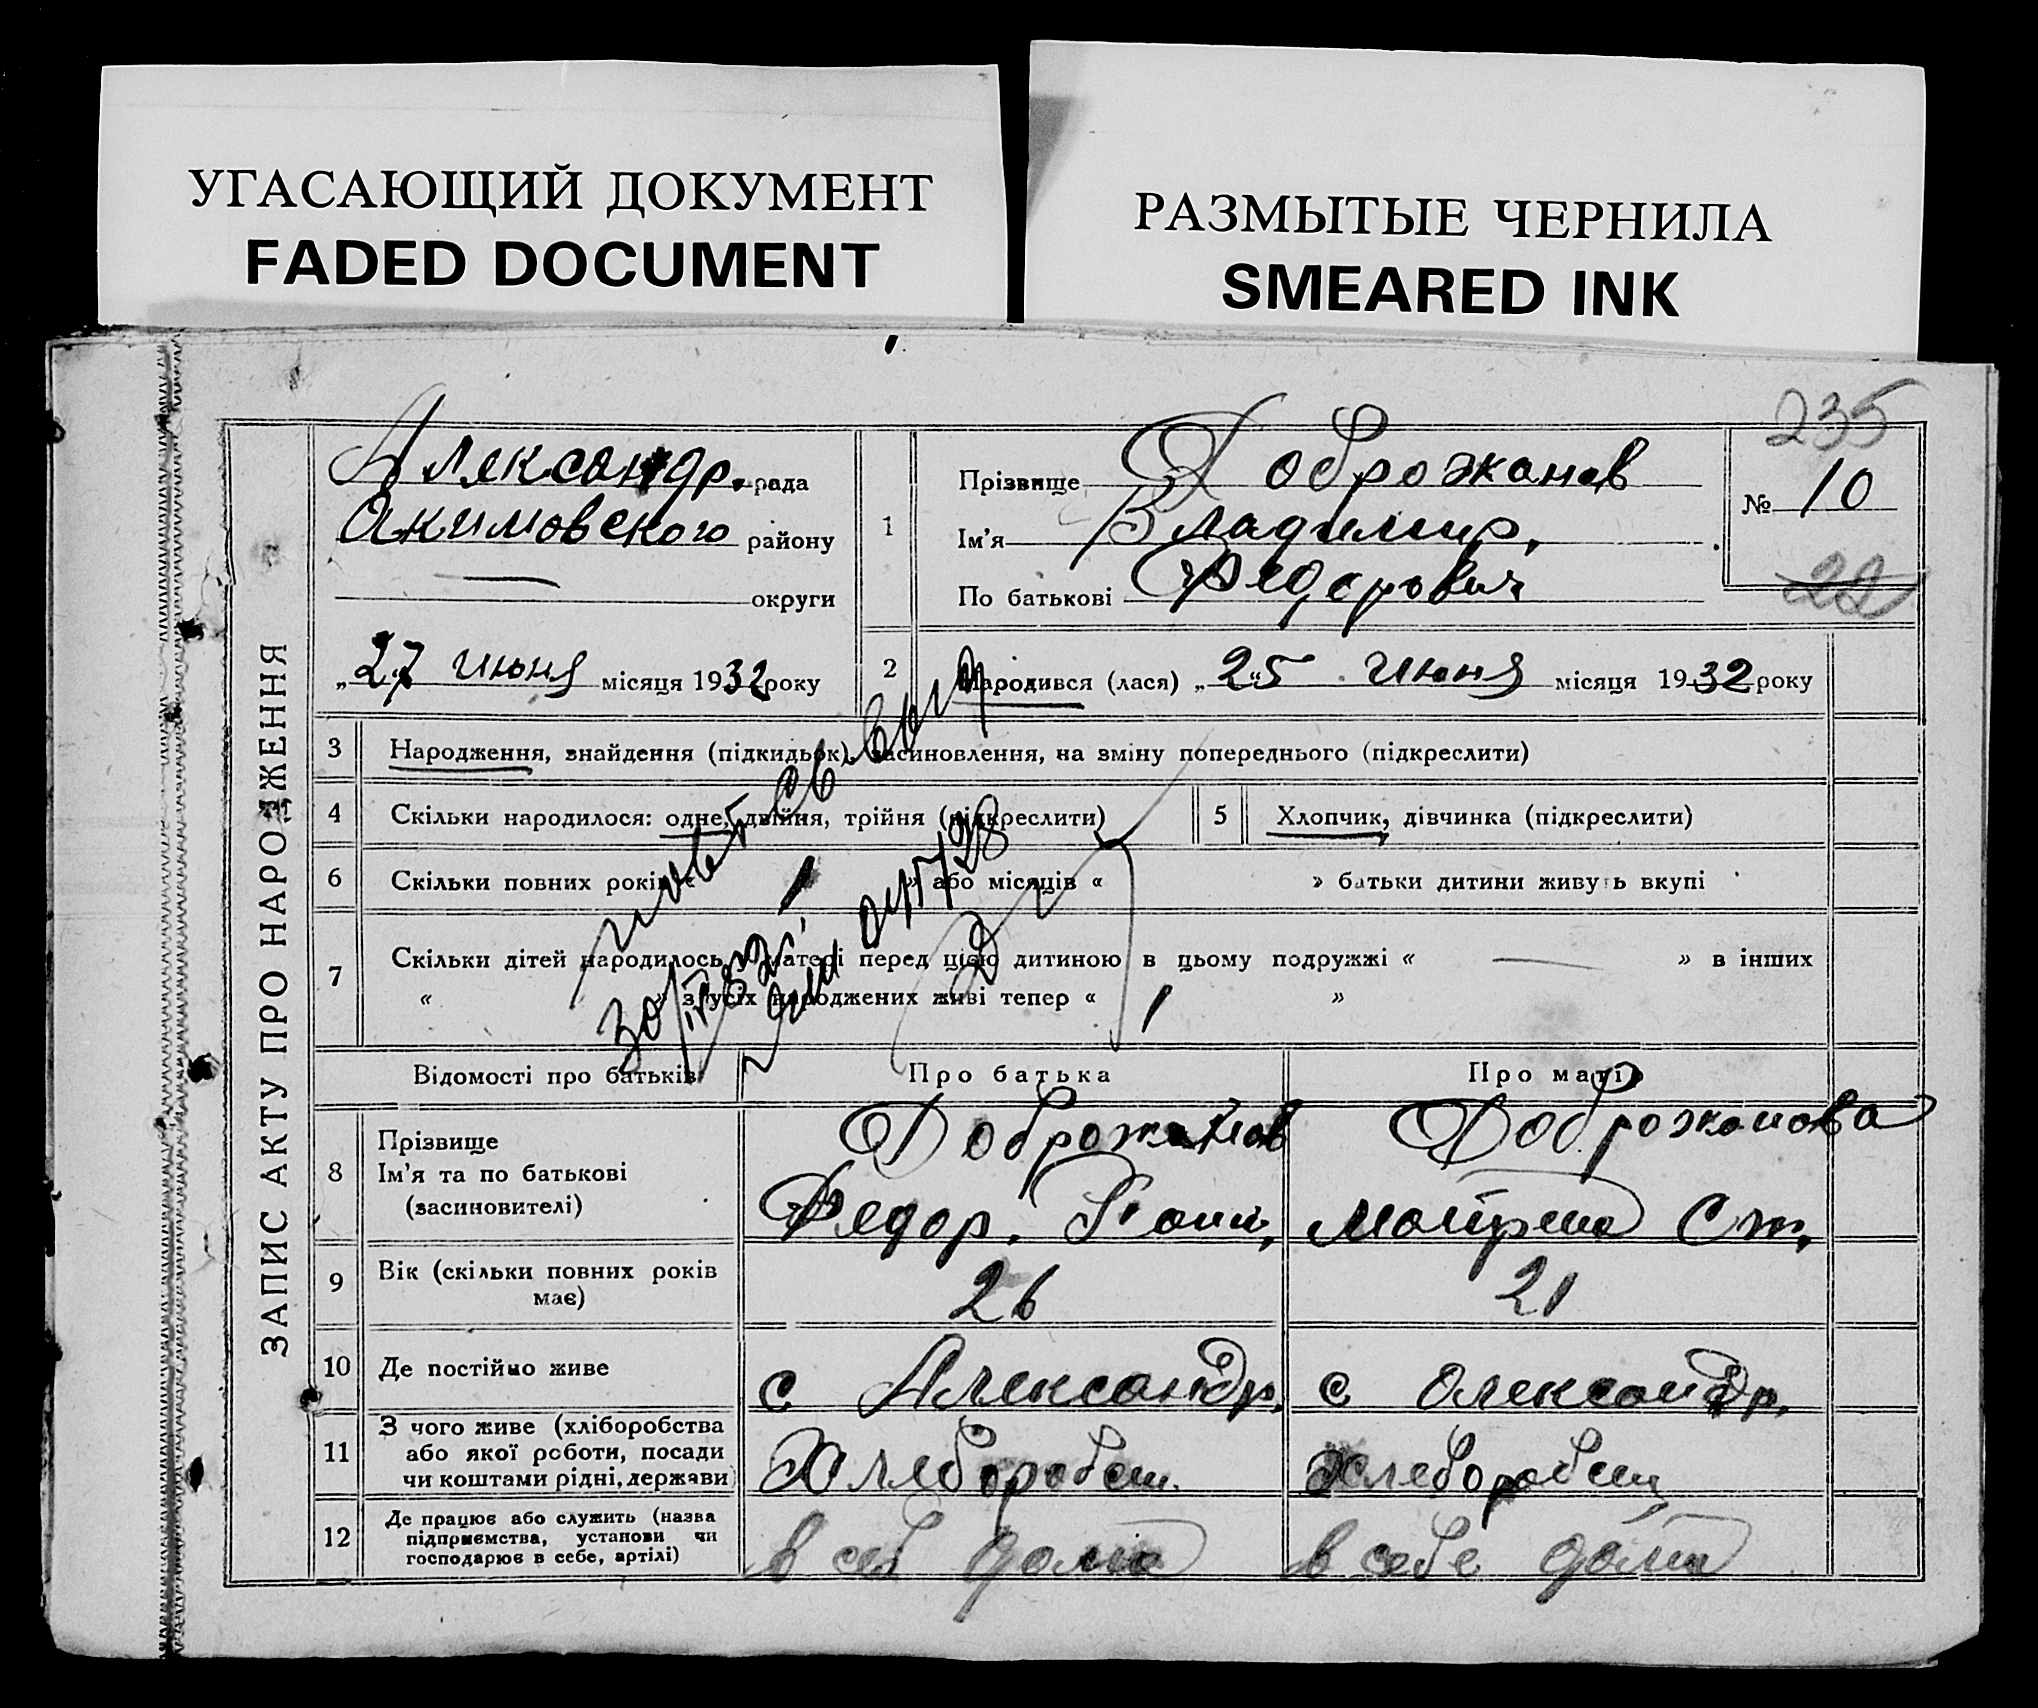 УГАСАЮЩИЙ ДОКУМЕНТ
FADED DOCUMENT
РАЗМЫТЫЕ ЧЕРНИЛА
SMEARED INK
ЗАПИС АКТУ ПРО НАРОДЖЕННЯ
235
Александр. рада
Акимовского району
округи
„27 июня місяця 1932 року
1
Прізвище Доброжанов
Ім'я Владимир,
По батькові Федорович
№ 10
22
2 Народився (лася) „25 июня місяця 1932 року
3 Народження, знайдення (підкидьок), засиновлення, на зміну попереднього (підкреслити)
4 Скільки народилося: одне, двійня, трійня (підкреслити)
5 Хлопчик, дівчинка (підкреслити)
6 Скільки повних років « 1 » або місяців « » батьки дитини живуть вкупі
7 Скільки дітей народилось у матері перед цією дитиною в цьому подружжі « — » в інших
« » з усіх народжених живі тепер « 1 »
Відомості про батьків Про батька Про матір
8 Прізвище
Ім'я та по батькові
(засиновителі)
Доброжанов
Федор.
Доброжанова
Матрена Ст.
9 Вік (скільки повних років
має)
26
21
10 Де постійно живе
с Александр.
с Олександр.
11 З чого живе (хліборобства
або якої роботи, посади
чи коштами рідні, держави)
Хлебороб
Хлебороб
12 Де працює або служить (назва
підприємства, установи чи
господарює в себе, артілі)
в себе дома